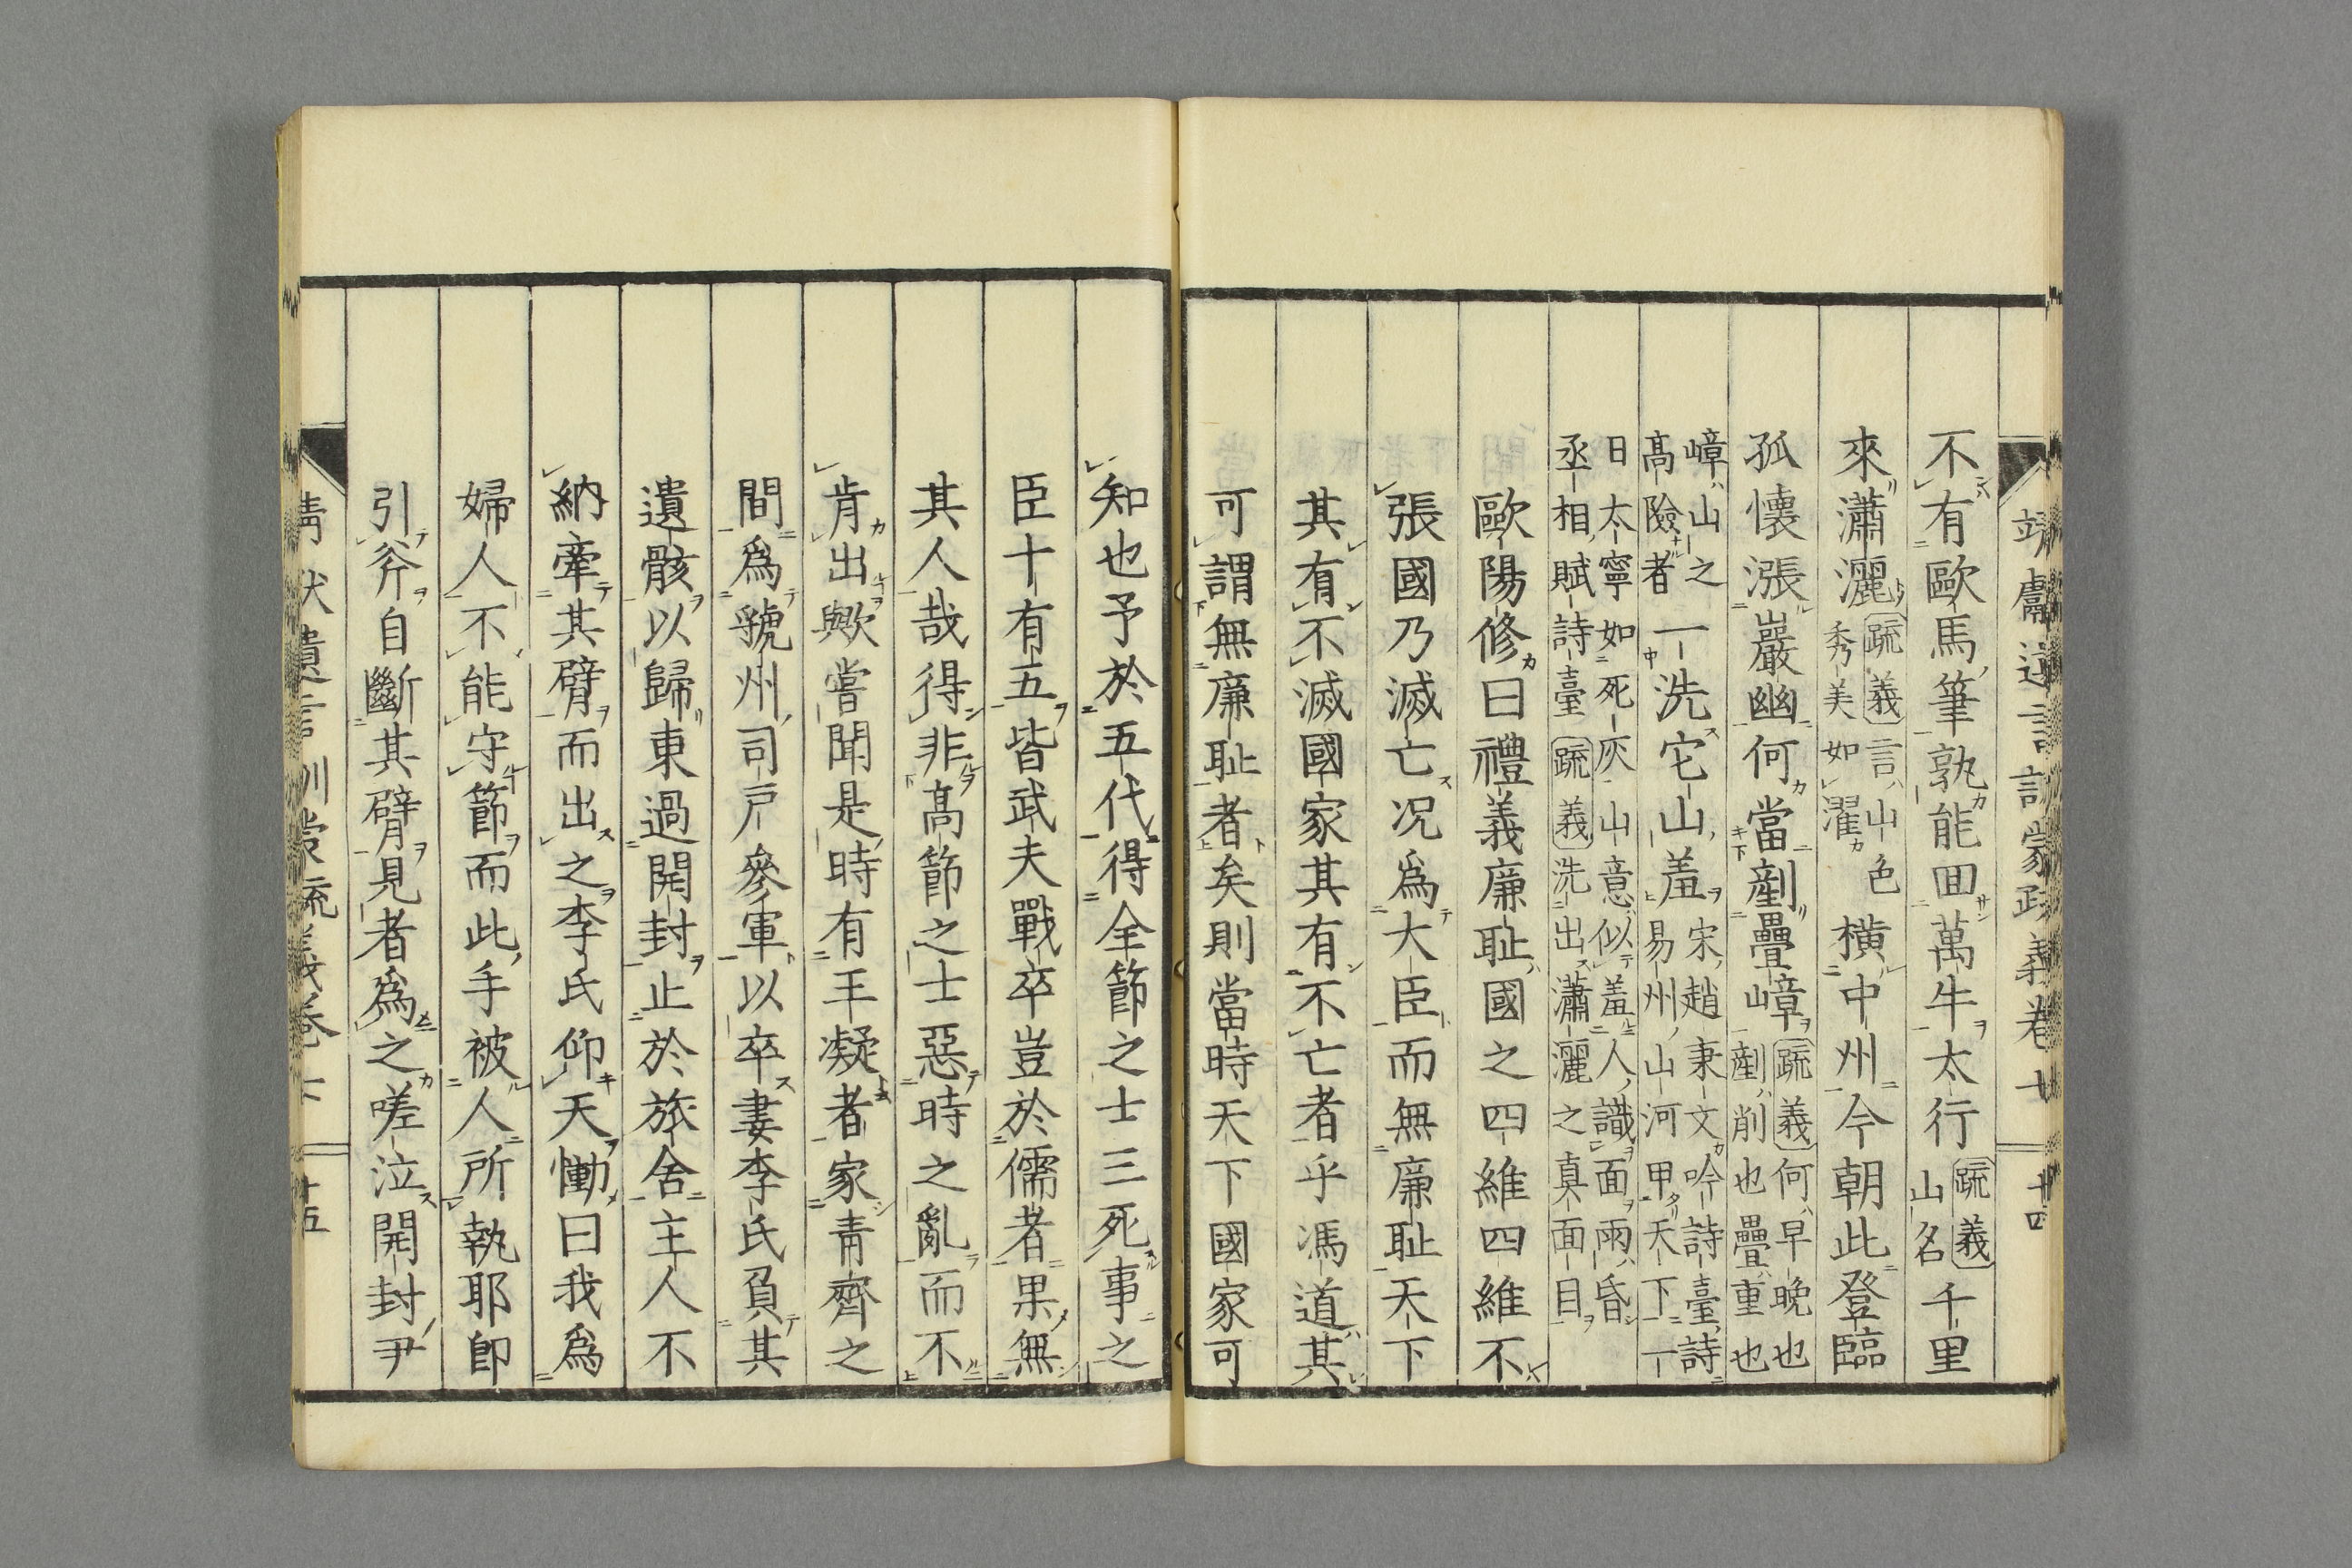 不有歐馬筆孰能回萬牛太行疏義山名千里
來瀟灑疏義言山色秀美如濯橫中州今朝此登臨
孤懷漲巖幽何當剷疊嶂疏義何早晚也剷削也疊重也
嶂山之高險者一洗宅山羞宋趙秉文吟詩臺詩易州山河甲天下一
日太寧如死灰山意似羞人識面雨昏丞相賦詩臺疏義洗出瀟灑之真面目
歐陽修曰禮義廉耻國之四維四維不
張國乃滅亡况爲大臣而無廉耻天下
其有不滅國家其有不亡者乎馮道其
可謂無廉耻者矣則當時天下國家可
知也予於五代得全節之士三死事之
臣十有五皆武夫戰卒豈於儒者果無
其人哉得非高節之士惡時之亂而不
肯出歟嘗聞是時有王凝者家青齊之
間爲虢州司戶參軍以卒妻李氏負其
遺骸以歸東過開封止於旅舍主人不
納牽其臂而出之李氏仰天慟曰我爲
婦人不能守節而此手被人所執耶卽
引斧自斷其臂見者爲之嗟泣開封尹